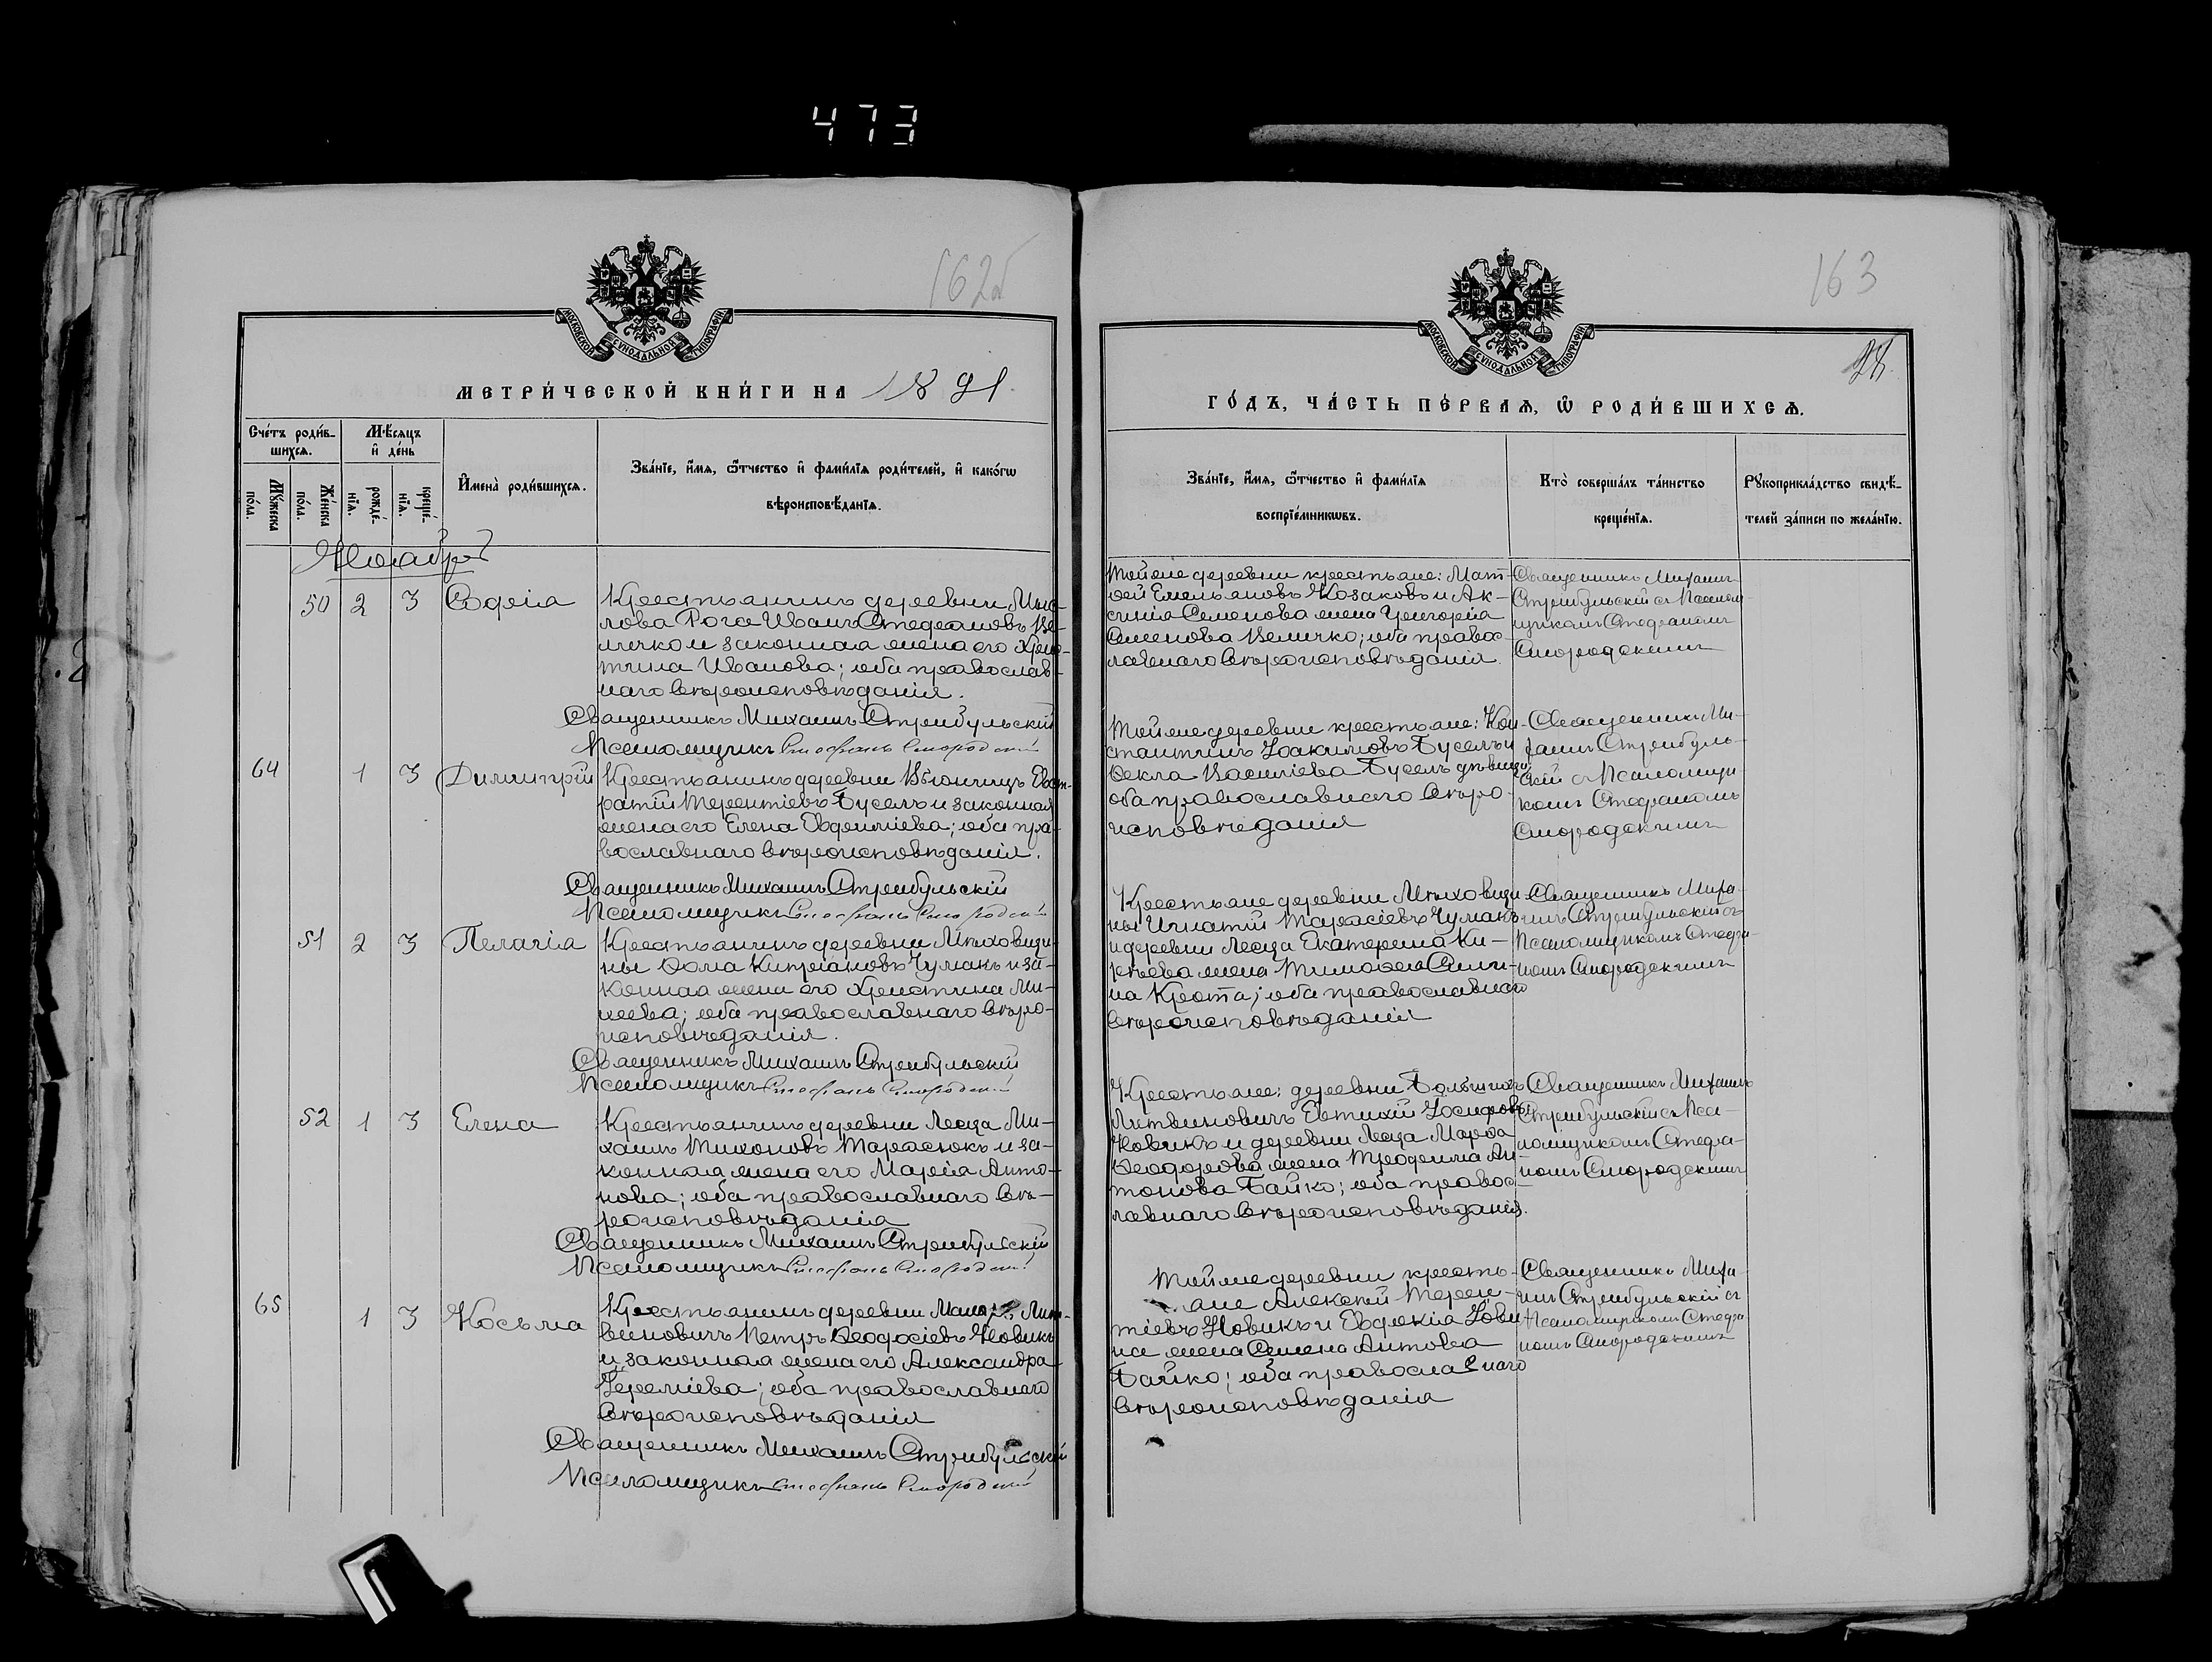 473
162б
МОСКОВСКОЙ СУНОДАЛЬНОЙ ТИПОГРАФІИ
МЕТРИ́ЧЕСКОЙ КНИ́ГИ НА 1891
Сче́тъ роди́в-
шихсѧ.
Мѣ́сѧцъ
и҆ де́нь
Мꙋ́жеска
по́ла.
Же́нска
по́ла.
рожде́-
нїѧ.
креще́-
нїѧ.
И҆мена̀ роди́вшихсѧ.
Зва́нїе, и҆́мѧ, ѻ҆́тчество и҆ фами́лїѧ роди́телей, и҆ како́гѡ
вѣроисповѣ́данїѧ.
Ноябрь
50 2 3 Софія
Крестьянинъ деревни
лова Рога Иванъ Стефановъ Ве-
личко и законная жена его Хрис-
тина Иванова; оба православ-
наго вѣроисповѣданія.
Священникъ Михаилъ Стрибульскій
Псаломщикъ Стефанъ Смородскій
64 1 3 Димитрій
Крестьянинъ деревни Вѣюничъ Евст-
ратій Терентіевъ Буселъ и законная
жена его Елена Евфиміева; оба пра-
вославнаго вѣроисповѣданія.
Священникъ Михаилъ Стрибульскій
Псаломщикъ Стефанъ Смородскій
51 2 3 Пелагія
Крестьянинъ деревни Мѣховщи-
ны Ѳома Кипріановъ Чумакъ и за-
конная жена его Христина Ми-
хеева; оба православнаго вѣро-
исповѣданія.
Священникъ Михаилъ Стрибульскій
Псаломщикъ Стефанъ Смородскій
52 1 3 Елена
Крестьянинъ деревни Лееза Ми-
хаилъ Тихоновъ Тарасюкъ и за-
конная жена его Марія Анто-
нова; оба православнаго вѣ-
роисповѣданія
Священникъ Михаилъ Стрибульскій
Псаломщикъ Стефанъ Смородскій
65 1 3 Косьма
Крестьянинъ деревни Малыхъ Лит-
виновичъ Петръ Ѳеодосіевъ Новикъ
и законная жена его Александра
Іереміева; оба православнаго
вѣроисповѣданія
Священникъ Михаилъ Стрибульскій
Псаломщикъ Стефанъ Смородскій
163
МОСКОВСКОЙ СУНОДАЛЬНОЙ ТИПОГРАФІИ
ГО́ДЪ, ЧА́СТЬ ПЕ́РВАѦ, Ѽ РОДИ́ВШИХСѦ.
Зва́нїе, и҆́мѧ, ѻ҆́тчество и҆ фами́лїѧ
воспрїе́мникѡвъ.
Кто̀ соверша́лъ та́инство
креще́нїѧ.
Рꙋкоприкла́дство свидѣ́-
телей за́писи по жела́нїю.
Той же деревни крестьяне: Мат-
ѳей Емельяновъ Козаковъ и Ак-
синія Семенова жена Григорія
Семенова Величко; оба правос-
лавнаго вѣроисповѣданія.
Священникъ Михаилъ
Стрибульскій съ Псалом-
щикомъ Стефаномъ
Смородскимъ
Той же деревни крестьяне: Кон-
стантинъ Іоакимовъ Буселъ и
Ѳекла Василіева Буселъ дѣвица;
оба православнаго вѣро-
исповѣданія
Священникъ Ми-
хаилъ Стрибуль-
скій съ Псаломщи-
комъ Стефаномъ
Смородскимъ
Крестьяне деревни Мѣховщи-
ны Игнатій Тарасіевъ Чумакъ
и деревни Лееза Екатерина Ки-
рѣева жена Тимоѳея Сили-
на Крота; оба православнаго
вѣроисповѣданія
Священникъ Миха-
илъ Стрибульскій съ
Псаломщикомъ Стефа-
номъ Смородскимъ
Крестьяне: деревни Большихъ
Литвиновичъ Евтихій Іосифовъ
Новикъ и деревни Лееза Марѳа
Ѳеодорова жена Трофима Ан-
тонова Байко; оба правос-
лавнаго вѣроисповѣданія.
Священникъ Михаилъ
Стрибульскій съ Пса-
ломщикомъ Стефа-
номъ Смородскимъ
Той же деревни кресть-
яне Алексій Терен-
тіевъ Новикъ и Евдокія Іови-
на жена Семена Антова
Байко; оба православнаго
вѣроисповѣданія
Священникъ Миха-
илъ Стрибульскій съ
Псаломщикомъ Стефа-
номъ Смородскимъ